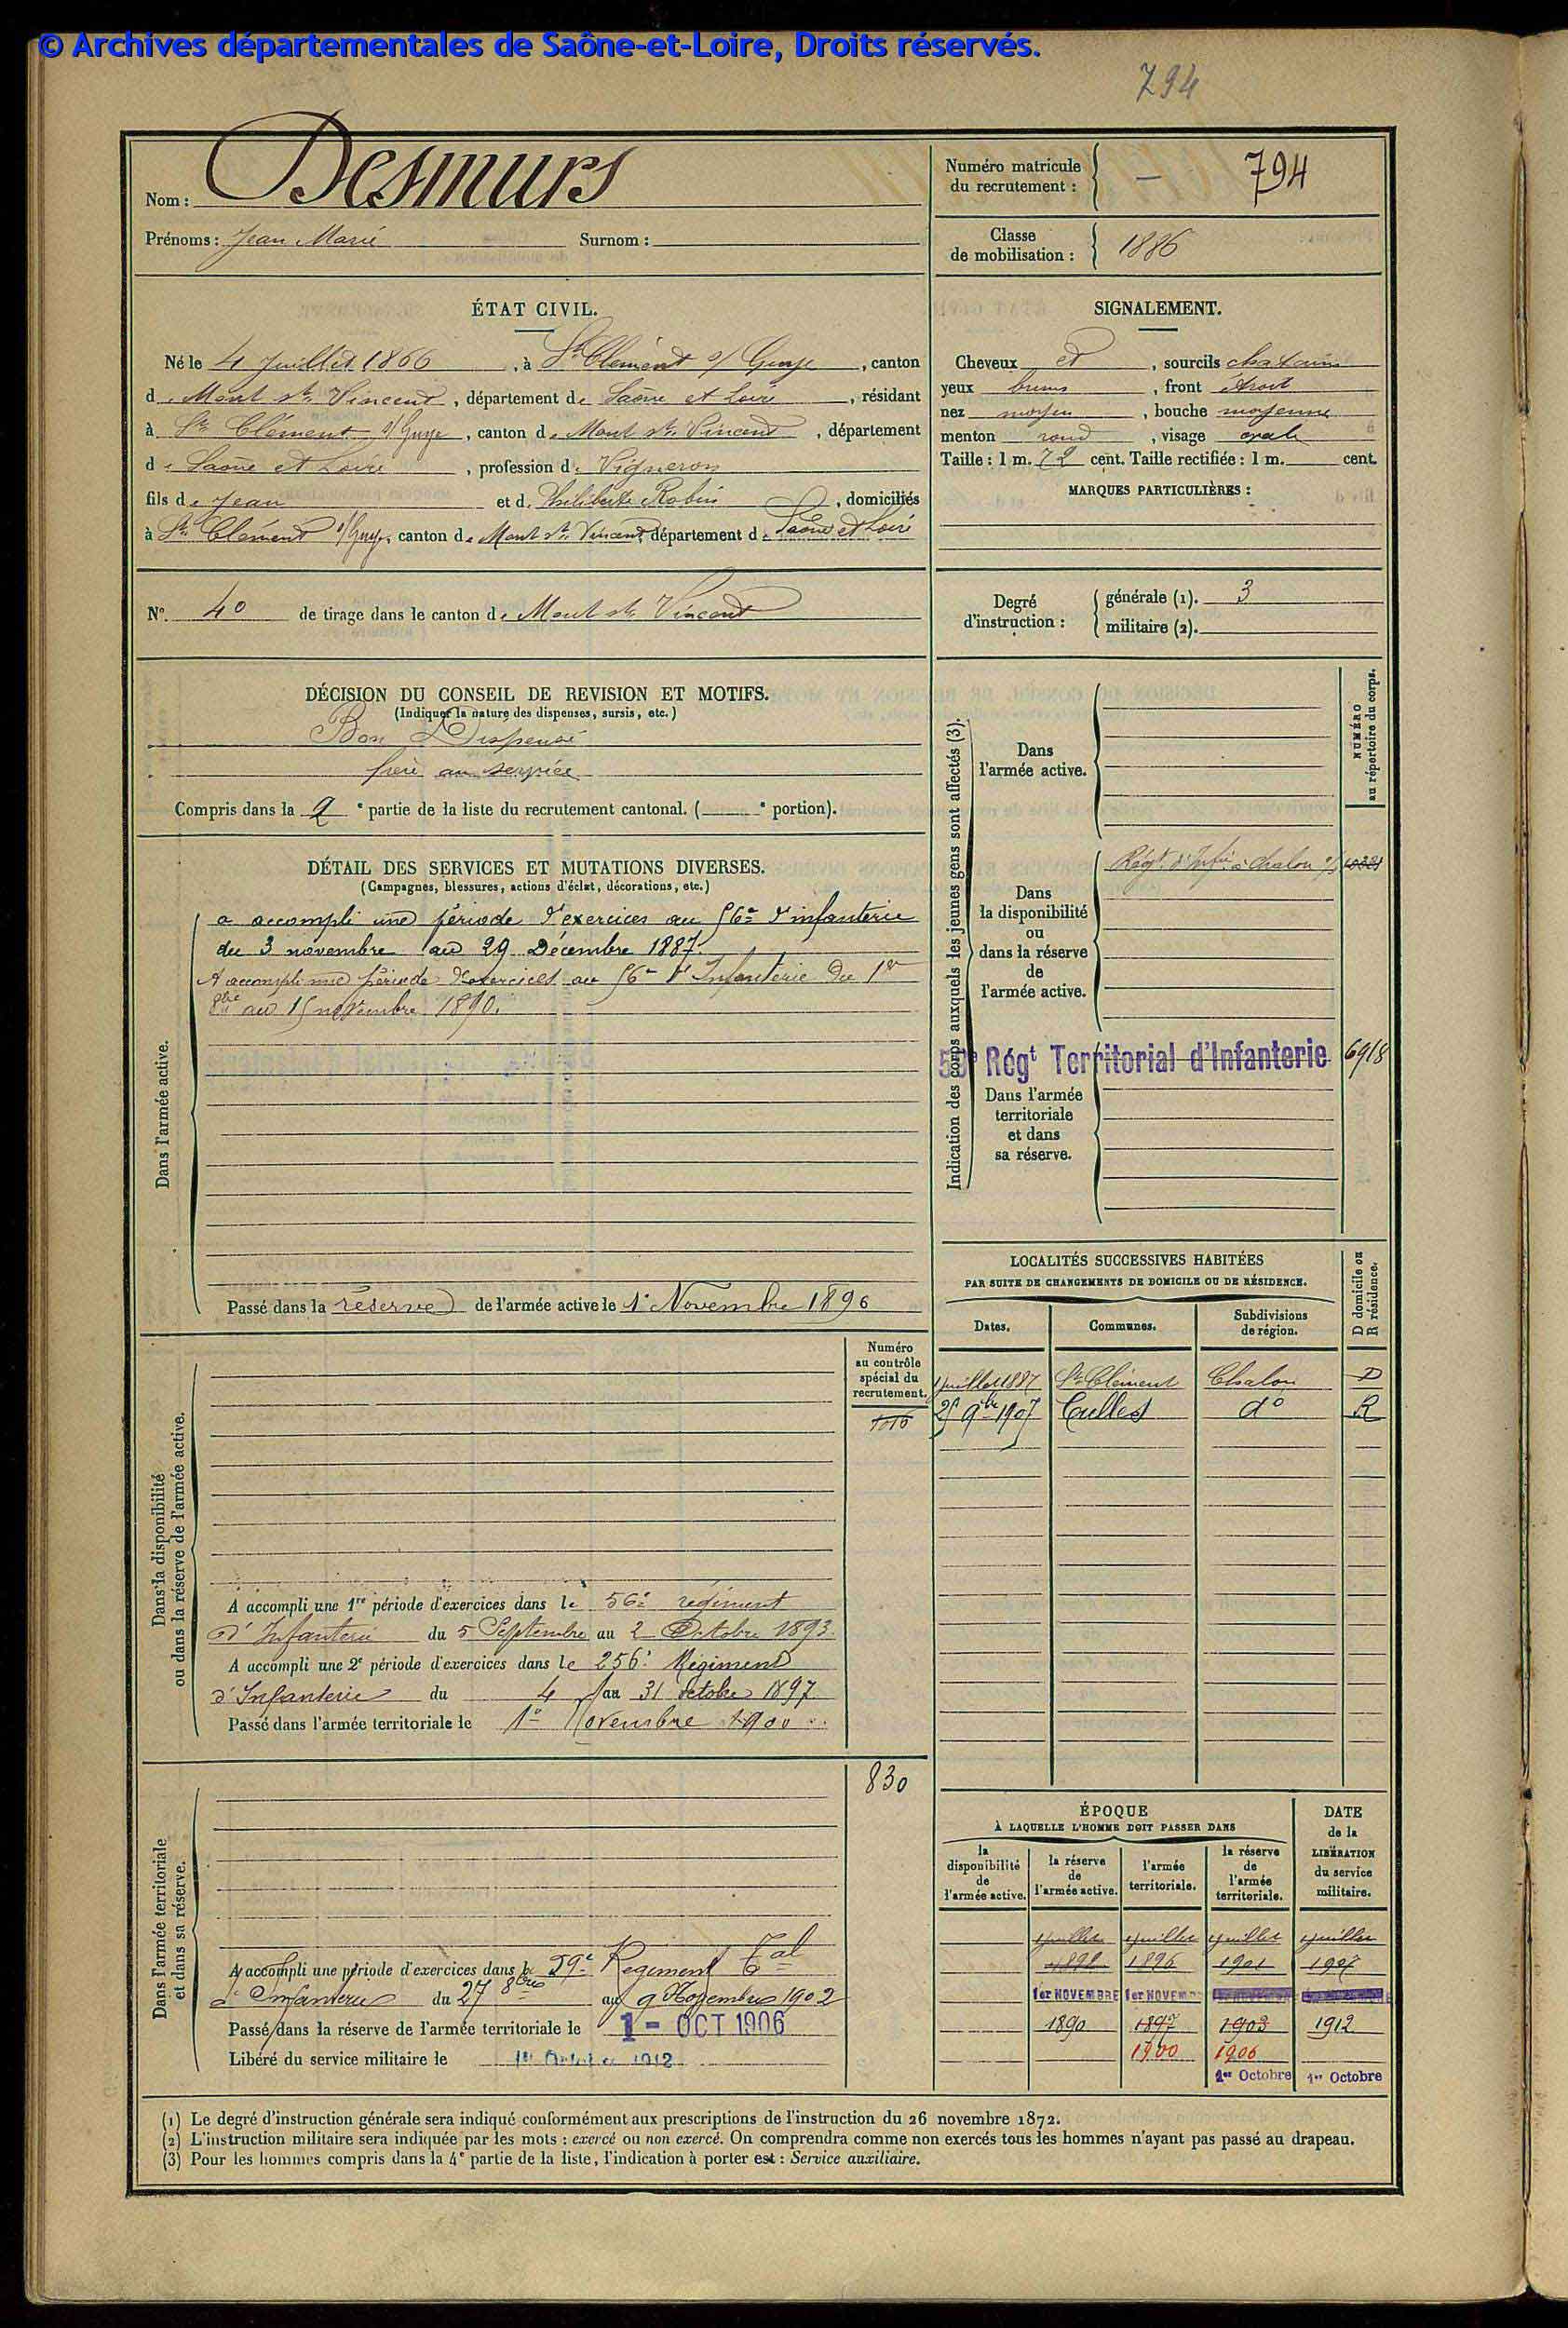 © Archives départementales de Saône-et-Loire, Droits réservés.
794
Nom : Desmurs
Prénoms : Jean Marie Surnom :
Numéro matricule du recrutement : — 794
Classe de mobilisation : 1886
ÉTAT CIVIL.
Né le 4 Juillet 1866, à St Clément s/ Guye, canton
de Mont St Vincent, département de Saône et Loire, résidant
à St Clément s/ Guye, canton de Mont St Vincent, département
de Saône et Loire, profession de Vigneron
fils de Jean et de Philiberte Robin, domiciliés
à St Clément s/ Guye, canton de Mont St Vincent, département de Saône et Loire
SIGNALEMENT.
Cheveux et, sourcils chatains
yeux bruns, front étroit
nez moyen, bouche moyenne
menton rond, visage ovale
Taille : 1 m. 72 cent. Taille rectifiée : 1 m. cent.
MARQUES PARTICULIÈRES :
N° 40 de tirage dans le canton de Mont St Vincent
Degré d'instruction : générale (1). 3
militaire (2).
DÉCISION DU CONSEIL DE REVISION ET MOTIFS.
(Indiquer la nature des dispenses, sursis, etc.)
Bon Dispensé
frère au service
Compris dans la 2e partie de la liste du recrutement cantonal. ( e portion).
DÉTAIL DES SERVICES ET MUTATIONS DIVERSES.
(Campagnes, blessures, actions d'éclat, décorations, etc.)
Dans l'armée active.
a accompli une période d'exercices au 56e d'infanterie
du 3 novembre au 29 Décembre 1887.
A accompli une période d'exercices au 56e d'Infanterie du 1er
8bre au 15 novembre 1890.
Passé dans la réserve de l'armée active le 1er Novembre 1890
Indication des corps auxquels les jeunes gens sont affectés (3).
NUMÉRO au répertoire du corps.
Dans l'armée active.
Dans la disponibilité ou dans la réserve de l'armée active.
Régt d'Infie à Chalon s/
Régt Territorial d'Infanterie 6918
Dans l'armée territoriale et dans sa réserve.
LOCALITÉS SUCCESSIVES HABITÉES
PAR SUITE DE CHANGEMENTS DE DOMICILE OU DE RÉSIDENCE.
D domicile ou R résidence.
Dates. Communes. Subdivisions de région.
1 juillet 1887 St Clément Chalon D
25 9bre 1907 Culles do R
Dans la disponibilité ou dans la réserve de l'armée active.
Numéro au contrôle spécial du recrutement.
1016
A accompli une 1re période d'exercices dans le 56e régiment
d'Infanterie du 5 Septembre au 2 Octobre 1893.
A accompli une 2e période d'exercices dans le 256e Régiment
d'Infanterie du 4 au 31 octobre 1897
Passé dans l'armée territoriale le 1er Novembre 1900
Dans l'armée territoriale et dans sa réserve.
830
A accompli une période d'exercices dans le 59e Régiment Tal
d'Infanterie du 27 8bre au 9 Novembre 1902
Passé dans la réserve de l'armée territoriale le 1 - OCT 1906
Libéré du service militaire le 1er Octobre 1912
ÉPOQUE
À LAQUELLE L'HOMME DOIT PASSER DANS
DATE de la LIBÉRATION du service militaire.
la disponibilité de l'armée active. la réserve de l'armée active. l'armée territoriale. la réserve de l'armée territoriale.
1 juillet 1 juillet 1 juillet 1 juillet
1892 1896 1901 1907
1er NOVEMBRE 1er NOVEMBRE
1890 1897 1903 1912
1900 1906
1er Octobre 1er Octobre
(1) Le degré d'instruction générale sera indiqué conformément aux prescriptions de l'instruction du 26 novembre 1872.
(2) L'instruction militaire sera indiquée par les mots : exercé ou non exercé. On comprendra comme non exercés tous les hommes n'ayant pas passé au drapeau.
(3) Pour les hommes compris dans la 4e partie de la liste, l'indication à porter est : Service auxiliaire.